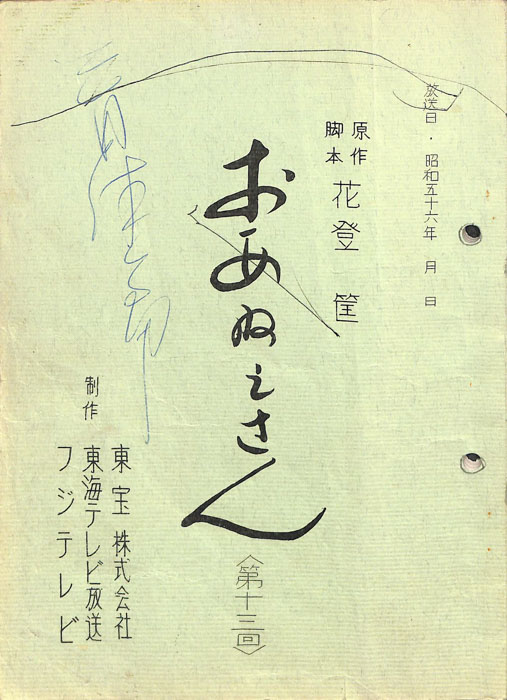 放送日・昭和五十六年 月 日
原作
脚本
花登 筐
おあねえさん
〈第十三回〉
制作
東宝株式会社
東海テレビ放送
フジテレビ